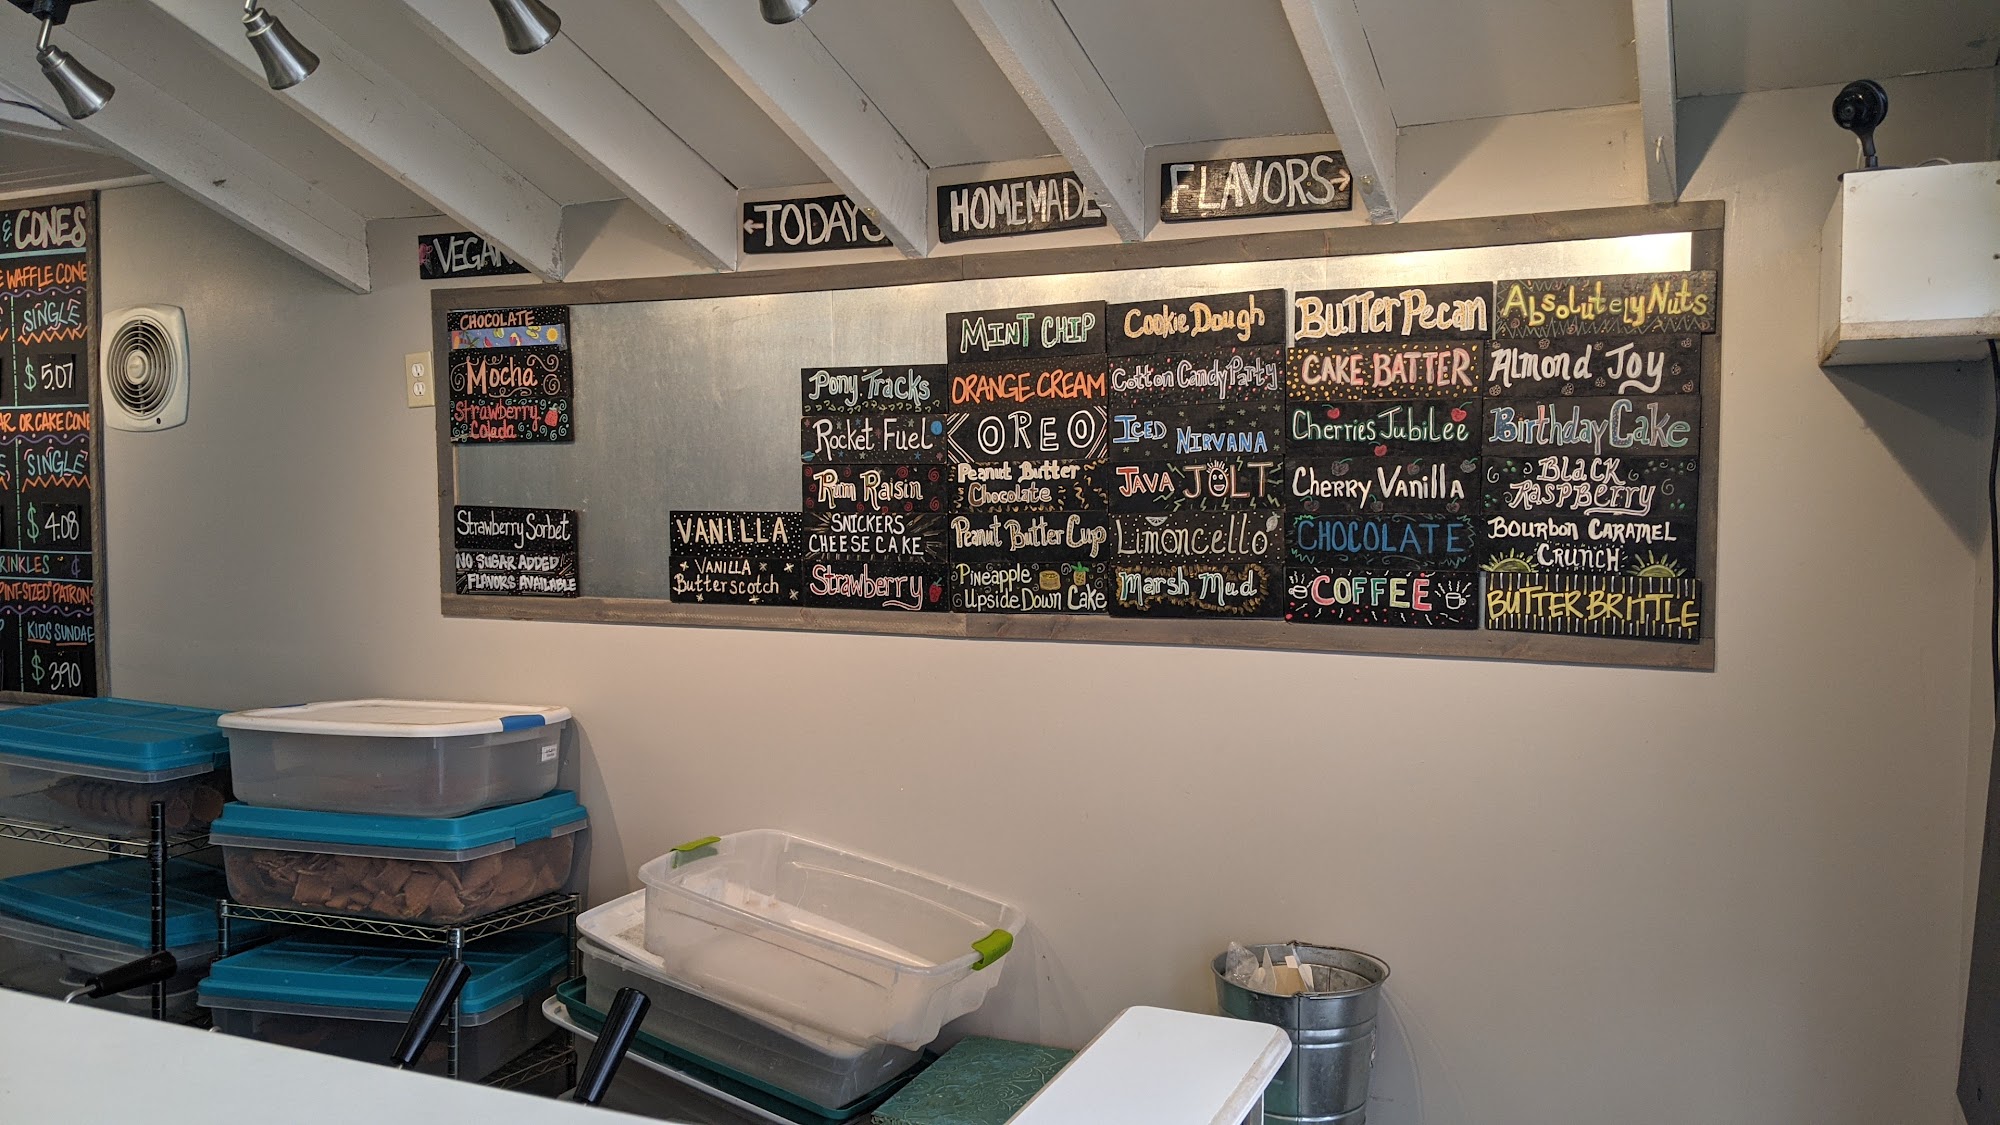 & CONES
WAFFLE CONE
SINGLE
$5.07
OR CAKE CONE
SINGLE
$4.08
KIDS SUNDAE
$3.90
VEGAN
←TODAYS
HOMEMADE
FLAVORS→
CHOCOLATE
Mocha
Strawberry
Colada
Strawberry Sorbet
NO SUGAR ADDED
FLAVORS AVAILABLE
VANILLA
VANILLA
Butterscotch
Pony Tracks
Rocket Fuel
Rum Raisin
SNICKERS
CHEESECAKE
Strawberry
MINT CHIP
ORANGE CREAM
OREO
Peanut Butter
Chocolate
Peanut Butter Cup
Pineapple
Upside Down Cake
Cookie Dough
Cotton Candy Party
ICED NIRVANA
JAVA JOLT
LIMONCELLO
Marsh Mud
Butter Pecan
CAKE BATTER
Cherries Jubilee
Cherry Vanilla
CHOCOLATE
COFFEE
Absolutely Nuts
Almond Joy
Birthday Cake
BLACK
RASPBERRY
BOURBON CARAMEL
CRUNCH
BUTTER BRITTLE